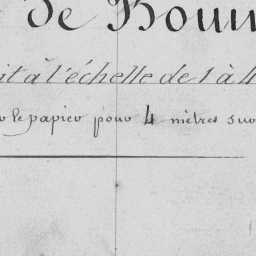 de Bou
it à l'échelle de 1 à 4
le papier pour 4 mètres sur